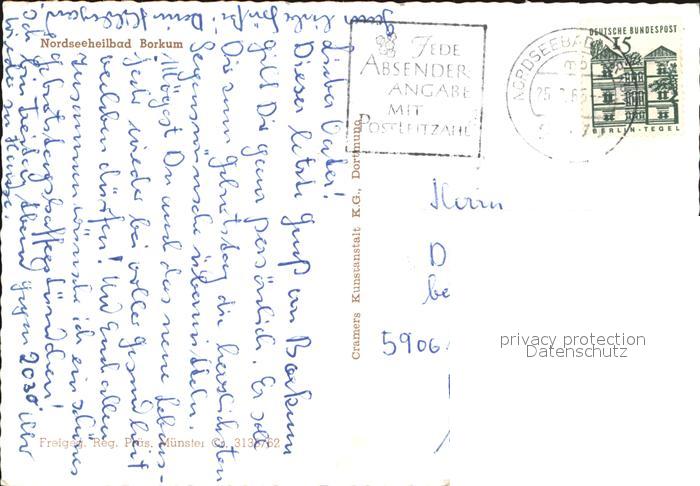 Nordseeheilbad Borkum
Lieber Vater!
Dieser letzte Gruß von Borkum
gilt Dir ganz persönlich. Er soll
Dir zum Geburtstag die herzlichsten
Segenswünsche übermitteln.
Mögest Du auch das neue Lebens-
jahr wieder bei voller Gesundheit
verleben dürfen! Und Euch allen
zusammen wünsche ich ein schönes
Geburtstagskaffeestündchen!
Freitag Abend gegen 20.30 Uhr
wieder zu Hause.
Freigeg. Reg. Präs. Münster 3135/62
Cramers Kunstanstalt K.G., Dortmund
JEDE
ABSENDER-
ANGABE
MIT
POSTLEITZAHL
NORDSEEBAD
DEUTSCHE BUNDESPOST
15
BERLIN-TEGEL
Herrn
D
be
5906
privacy protection
Datenschutz